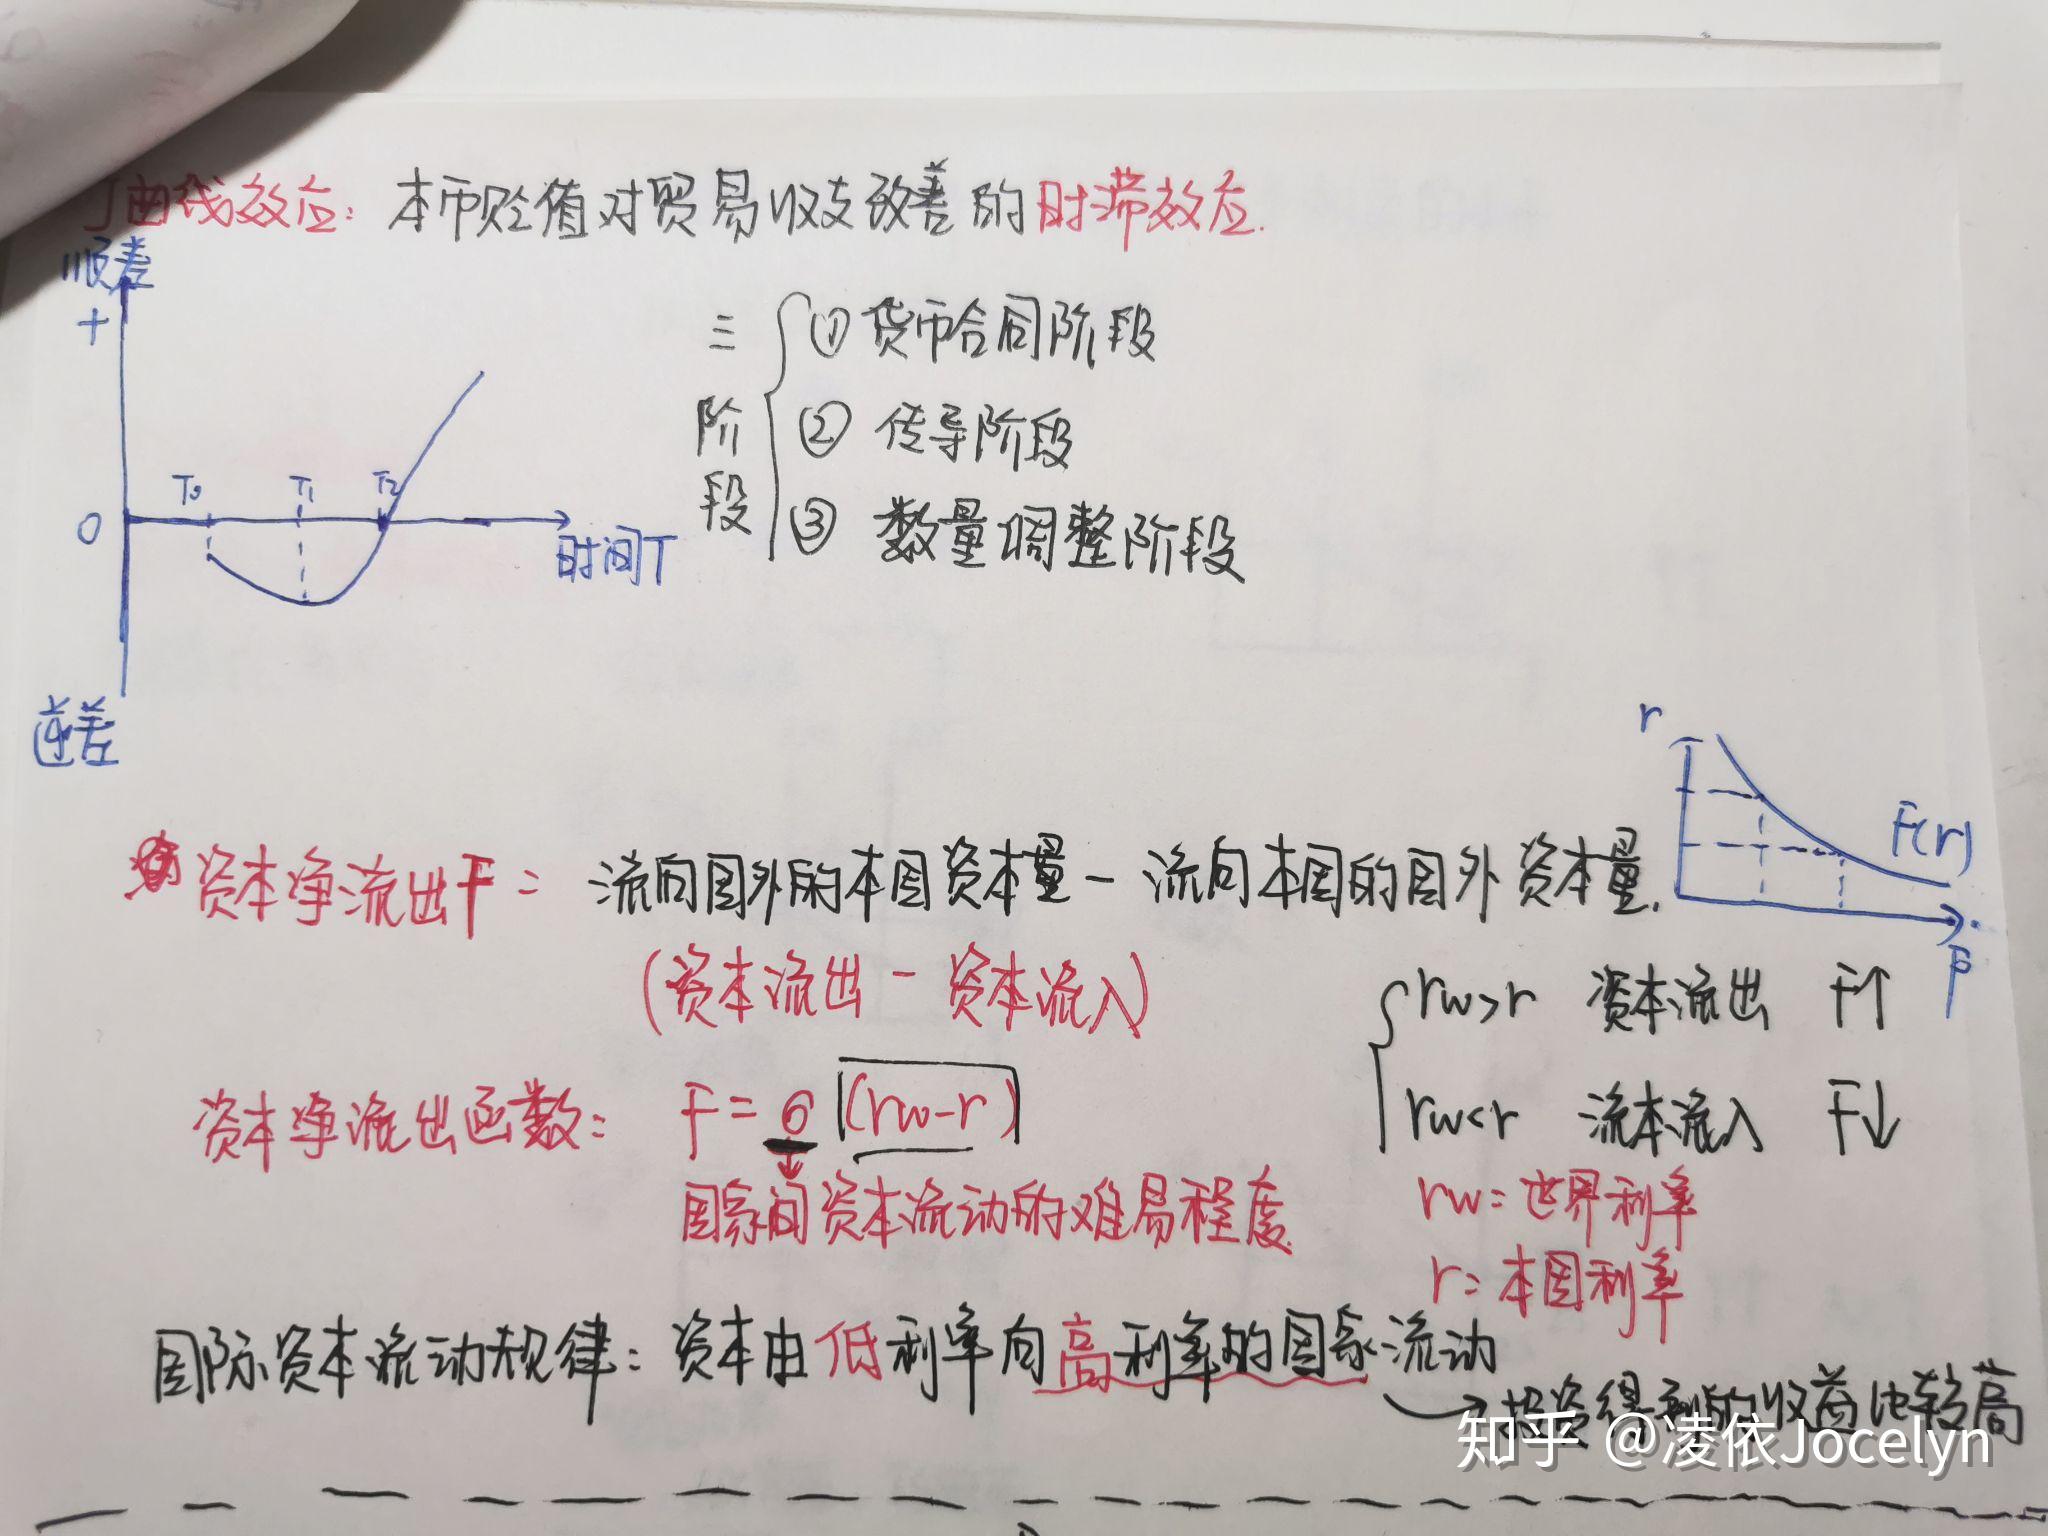 J曲线效应：本币贬值对贸易收支改善的时滞效应.
顺差
+
T0 T1 T2
0
时间T
逆差
三阶段
① 货币合同阶段
② 传导阶段
③ 数量调整阶段
r
F(r)
F
资本净流出F = 流向国外的本国资本量 - 流向本国的国外资本量.
(资本流出 - 资本流入)
rw>r 资本流出 F↑
rw<r 流本流入 F↓
资本净流出函数： F = σ (rw-r)
国家间资本流动的难易程度.
rw = 世界利率
r = 本国利率
国际资本流动规律：资本由低利率向高利率的国家流动
→投资得到的收益比较高
知乎 @凌依Jocelyn